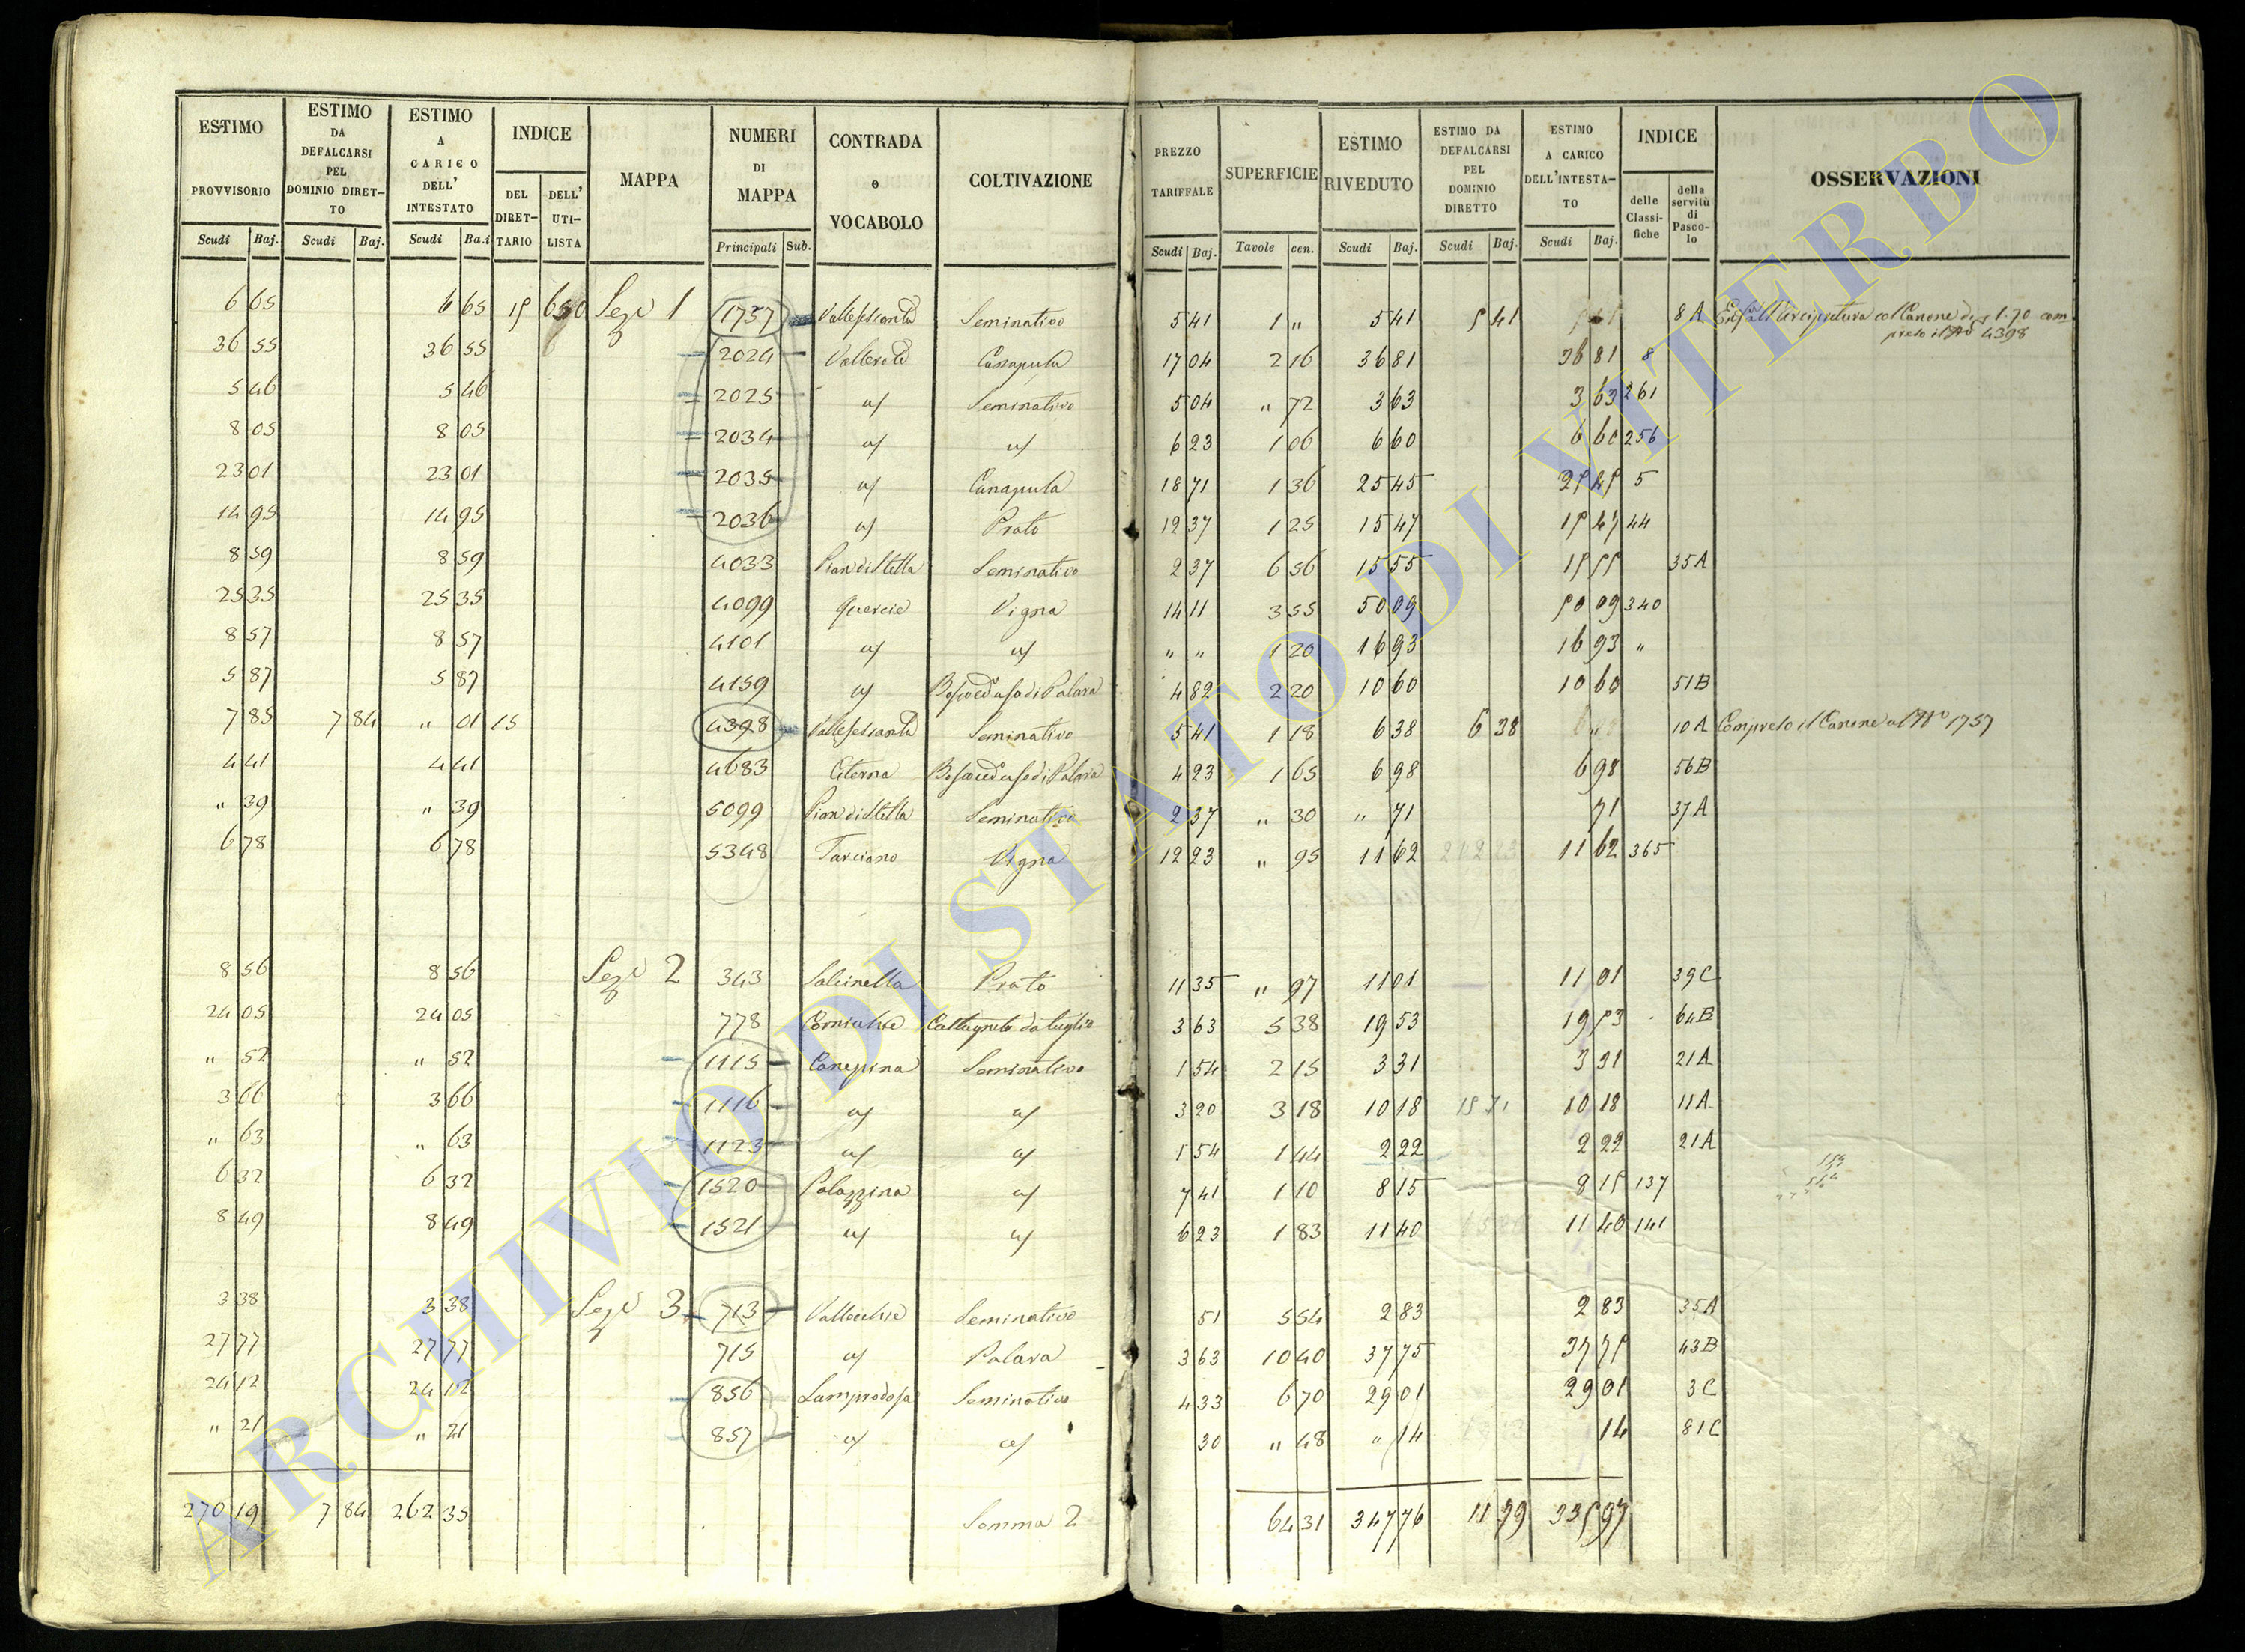 ESTIMO PROVVISORIO
ESTIMO DA DEFALCARSI PEL DOMINIO DIRET-TO
ESTIMO A CARICO DELL' INTESTATO
INDICE
DEL DIRET-TARIO
DELL' UTI-LISTA
MAPPA
NUMERI DI MAPPA
CONTRADA o VOCABOLO
COLTIVAZIONE
PREZZO TARIFFALE
SUPERFICIE
ESTIMO RIVEDUTO
ESTIMO DA DEFALCARSI PEL DOMINIO DIRETTO
ESTIMO A CARICO DELL'INTESTA-TO
INDICE
delle Classi-fiche
della servitù di Pasco-lo
OSSERVAZIONI
Scudi Baj. Scudi Baj. Scudi Ba.i Principali Sub. Scudi Baj. Tavole cen. Scudi Baj. Scudi Baj. Scudi Baj.
6 65 6 65 15 650 Sez 1 1757 Seminativo 5 41 1 " 5 41 5 41 8 A Canone di 1.70 com
preso il No 4398
36 55 36 55 2024 Canapula 17 04 2 16 36 81 36 81 8
5 46 5 46 2025 a/ Seminativo 5 04 " 72 3 63 3 63 261
8 05 8 05 2034 a/ a/ 6 23 1 06 6 60 6 60 256
23 01 23 01 2035 a/ Canapula 18 71 1 36 25 45 25 45 5
14 95 14 95 2036 a/ Prato 12 37 1 25 15 47 15 47 44
8 59 8 59 4033 Pian di Stella Seminativo 2 37 6 56 15 55 15 55 35 A
25 35 25 35 4099 Quercie Vigna 14 11 3 55 50 09 50 09 340
8 57 8 57 4101 a/ a/ " " 1 20 16 93 16 93 "
5 87 5 87 4159 a/ Bosco ceduo di Palara 4 82 2 20 10 60 10 60 51 B
7 85 7 84 " 01 15 4398 Seminativo 5 41 1 18 6 38 6 38 " 10 A Compreso il Canone al No 1757
4 41 4 41 4683 Citerna Bosco ceduo di Palara 4 23 1 65 6 98 6 98 56 B
" 39 " 39 5099 Pian di Stella Seminativo 2 37 " 30 " 71 71 37 A
6 78 6 78 5348 Tarciano Vigna 12 23 " 95 11 62 11 62 365
8 56 8 56 Sez 2 343 Salcinella Prato 11 35 " 97 11 01 11 01 39 C
24 05 24 05 778 Corniahie Castagneto da taglio 3 63 5 38 19 53 19 53 64 B
" 52 " 52 1115 Canepina Seminativo 1 54 2 15 3 31 3 31 21 A
3 66 3 66 1116 a/ a/ 3 20 3 18 10 18 10 18 11 A
" 63 " 63 1123 a/ a/ 1 54 1 44 2 22 2 22 21 A
6 32 6 32 1520 Palazzina a/ 7 41 1 10 8 15 8 15 137
8 49 8 49 1521 a/ a/ 6 23 1 83 11 40 11 40 141
3 38 3 38 Sez 3 713 Vallecchie Seminativo 51 5 54 2 83 2 83 35 A
27 77 27 77 715 a/ Palara 3 63 10 40 37 75 37 75 43 B
24 12 24 12 856 Lamprodosa Seminativo 4 33 6 70 29 01 29 01 3 C
" 21 " 21 857 a/ a/ 30 " 48 " 14 14 81 C
270 19 7 84 262 35 Somma 2 64 31 347 76 11 79 335 97
ARCHIVIO DI STATO DI VITERBO